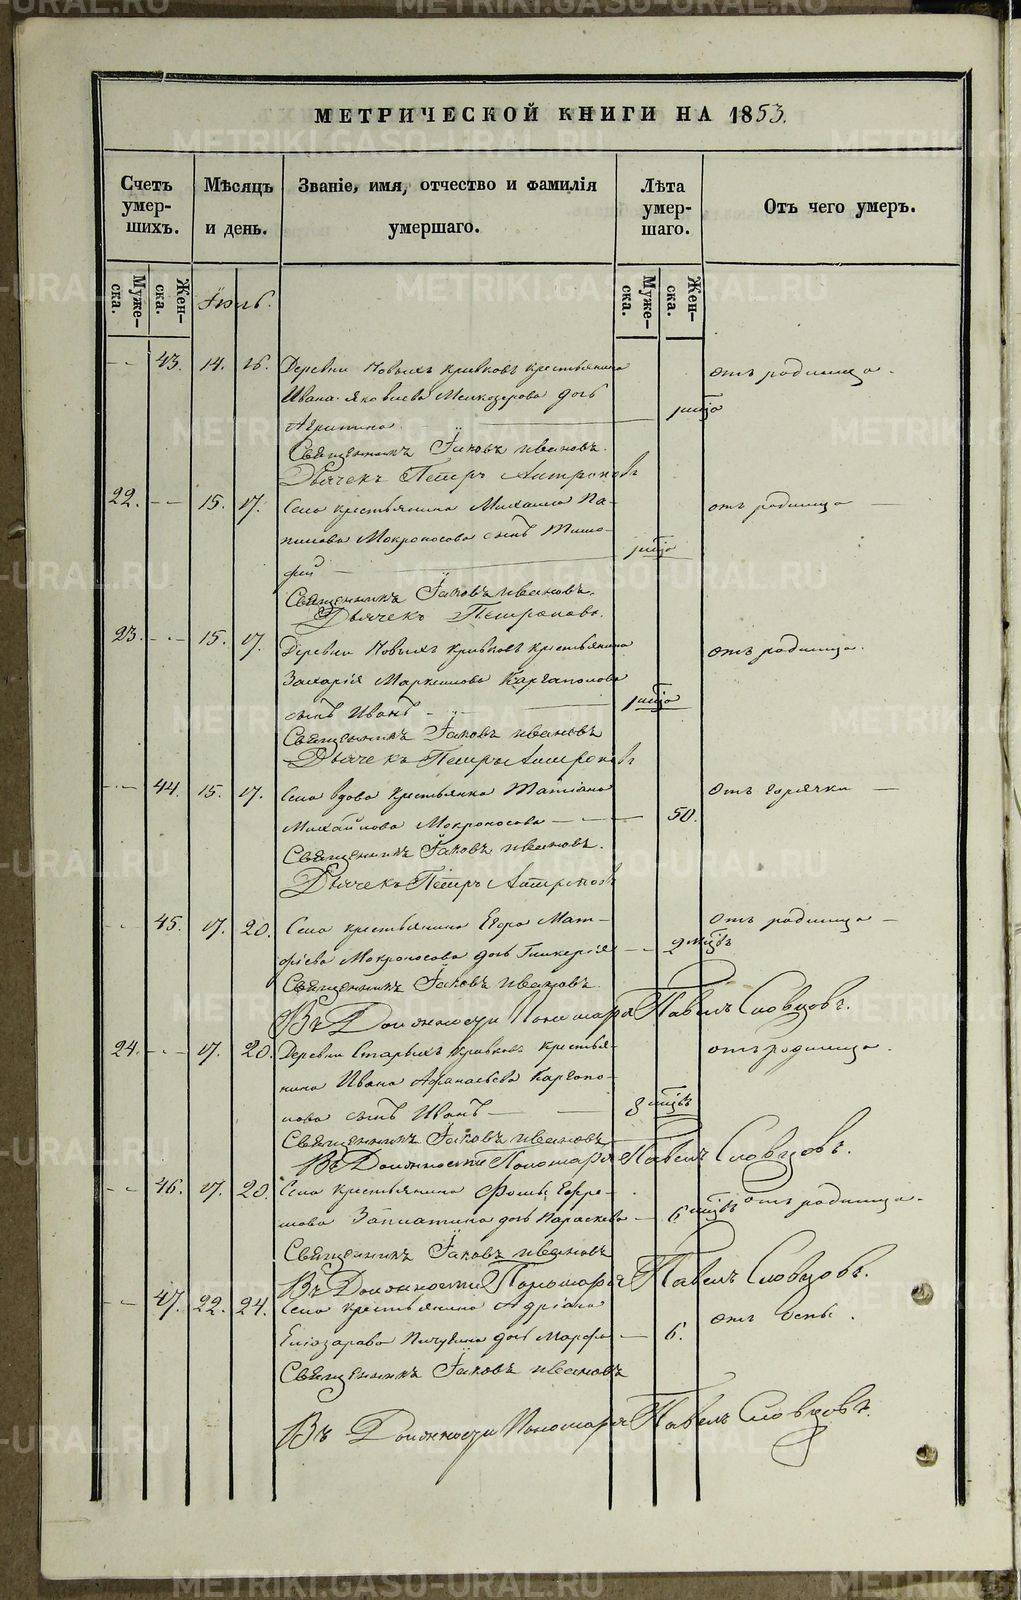 МЕТРИЧЕСКОЙ КНИГИ НА 1853.
Счетъ умер-шихъ.
Мѣсяцъ и день.
Званіе, имя, отчество и фамилія умершаго.
Лѣта умер-шаго.
Отъ чего умеръ.
Муже-ска.
Жен-ска.
Муже-ска.
Жен-ска.
Іюль.
43. 14. 16. Деревни Новыхъ Кривковъ крестьянина отъ родимца.
Ивана Яковлева Мелкозерова дочь
Агрипина
Священникъ Іаковъ Ивановъ.
Дьячекъ Петръ
22. 15. 17. Села крестьянина Михаила Па- отъ родимца
Мокроносова сынъ Тимо-
фей
Священникъ Іаковъ Ивановъ.
Дьячекъ
23. 15. 17. Деревни Новыхъ Кривковъ крестьянина отъ родимца.
Захарія Маркеллова Каргополова
сынъ Иванъ
Священникъ Іаковъ Ивановъ
Дьячекъ Петръ
44. 15. 17. Села вдова крестьянка Татіана отъ горячки
Михайлова Мокроносова 50.
Священникъ Іаковъ Ивановъ.
Дьячекъ Петръ
45. 17. 20. Села крестьянина Егора Мат- отъ родимца
фіева Мокроносова дочь Гликерія
Священникъ Іаковъ Ивановъ.
Въ Должности Пономаря Павелъ Словцовъ.
24. 17. 20. Деревни Старыхъ Кривковъ крестья- отъ родимца.
нина Ивана Афанасьева Каргопо-
лова сынъ Иванъ
Священникъ Іаковъ Ивановъ
Въ Должности Пономаря Павелъ Словцовъ.
46. 17. 20. Села крестьянина Фомы Ефре- отъ родимца.
мова Заплатина дочь Параскева 6
Священникъ Іаковъ Ивановъ
Въ Должности Пономаря Павелъ Словцовъ.
47. 22. 24. Села крестьянина Адріана отъ
Елеазарова Пичугина дочь Марфа 6.
Священникъ Іаковъ Ивановъ
Въ Должности Пономаря Павелъ Словцовъ.
METRIKI.GASO-URAL.RU